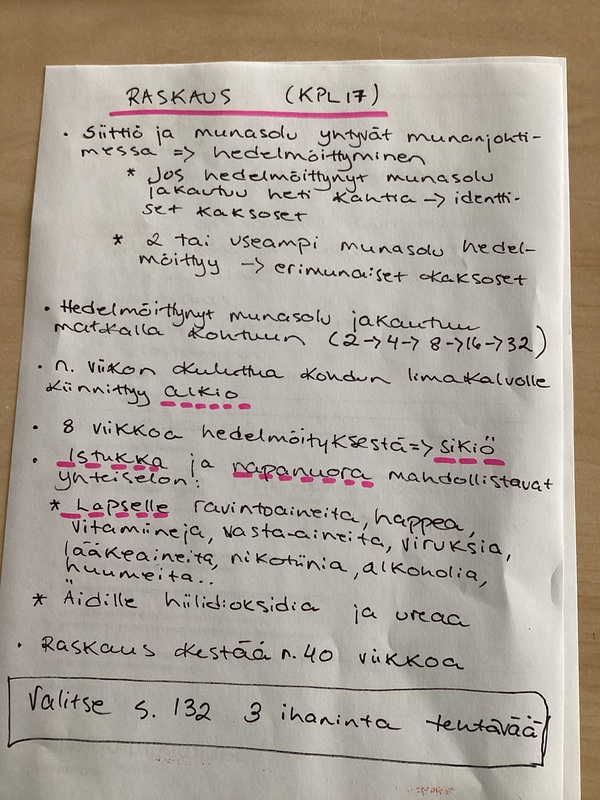 RASKAUS (KPL 17)
• Siittiö ja munasolu yhtyvät munanjohti-
messa => hedelmöittyminen
* Jos hedelmöittynyt munasolu
jakautuu heti kahtia -> identti-
set kaksoset
* 2 tai useampi munasolu hedel-
möittyy -> erimunaiset kaksoset
• Hedelmöittynyt munasolu jakautuu
matkalla kohtuun (2->4->8->16->32)
• n. viikon kuluttua kohdun limakalvolle
kiinnittyy alkio
• 8 viikkoa hedelmöityksestä=> sikiö
• Istukka ja napanuora mahdollistavat
yhteiselon:
* Lapselle ravintoaineita, happea,
vitamiineja, vasta-aineita, viruksia,
lääkeaineita, nikotiinia, alkoholia,
huumeita..
* Äidille hiilidioksidia ja ureaa
• Raskaus kestää n. 40 viikkoa
Valitse s. 132 3 ihaninta tehtävää